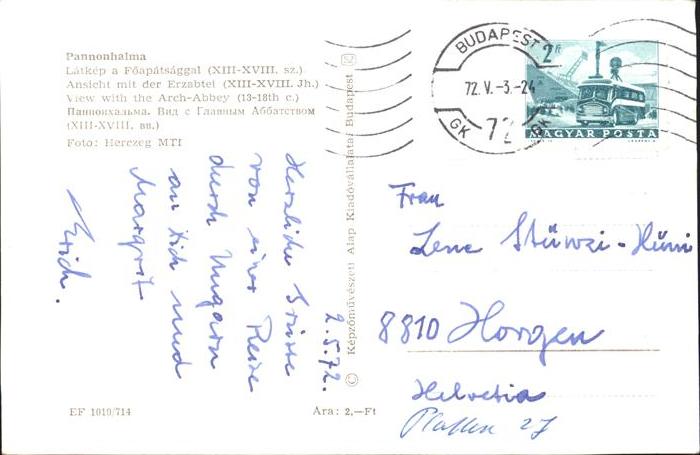 Pannonhalma
Látkép a Főapátsággal (XIII-XVIII. sz.)
Ansicht mit der Erzabtei (XIII-XVIII. Jh.)
View with the Arch-Abbey (13-18th c.)
Паннонхальма. Вид с Главным Аббатством
(XIII-XVIII. вв.)
Foto: Herczeg MTI
2.5.72.
Herzliche Grüsse
von einer Reise
durch Ungarn
an Dich und
Margrit
Erich.
EF 1010/714
Ára: 2,—Ft
© Képzőművészeti Alap Kiadóvállalata, Budapest
BUDAPEST
72.V.-3.-24
GK 72 GK
2 Ft
MAGYAR POSTA
Frau
Lene Stünzi-Hüni
8810 Horgen
Helvetia
27